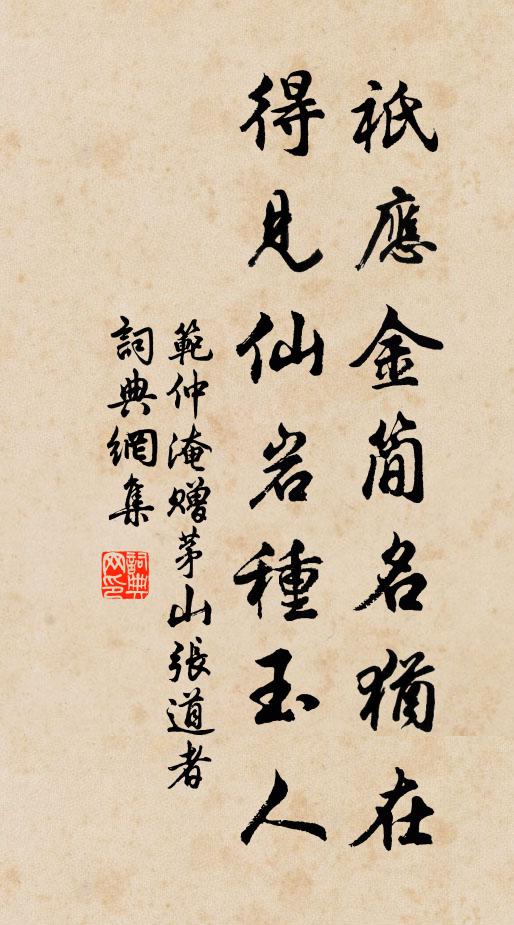 祇應金簡名猶在
得見仙岩種玉人
範仲淹贈茅山張道者
詞典網集
詞典网印